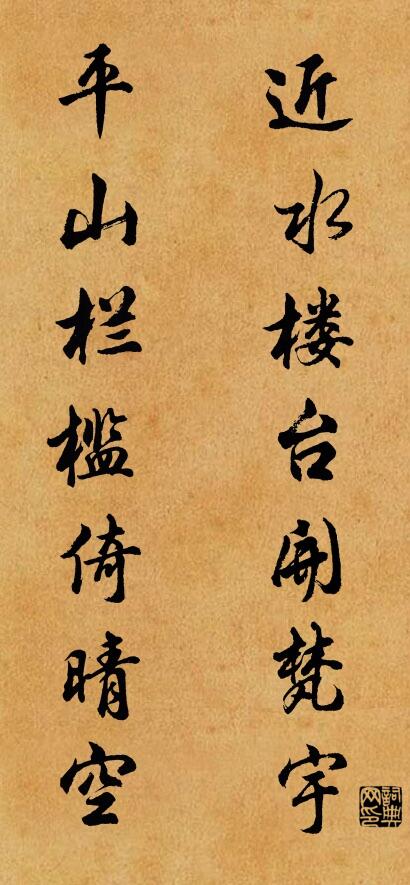 近水楼台开梵宇
平山栏槛倚晴空
詞典网印